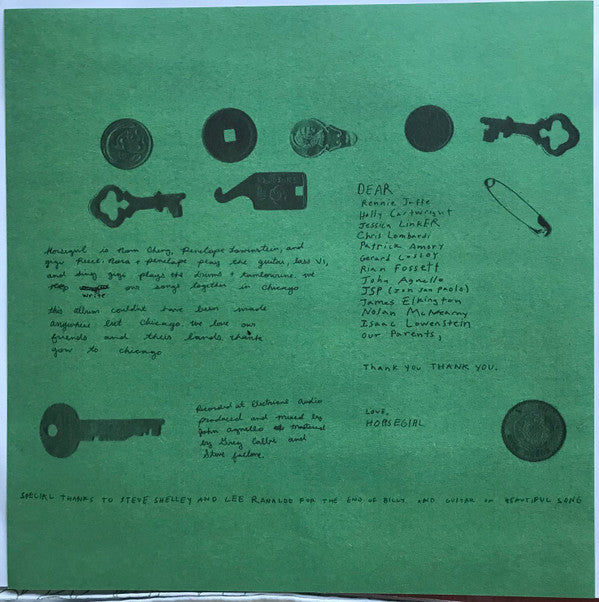 DEAR
Ronnie Jaffe
Holly Cartwright
Jessica LINKER
Chris Lombardi
Patrick Amory
Gerard Cosloy
Rian Fossett
John Agnello
JSP (Jon San Paolo)
James Elkington
Nolan McMearny
Isaac Lowenstein
our Parents,
Thank you THANK YOU.
LOVE,
HORSEGIRL
Horsegirl is Nora Cheng, Penelope Lowenstein, and
gigi Reece. Nora + Penelope play the guitar, bass VI,
and sing. gigi plays the drums + tambourine. we
write our songs together in Chicago
this album couldnt have been made
anywhere but Chicago. we love our
friends and their bands. thank
you to chicago
Recorded at Electrical Audio
produced and mixed by
John Agnello mastered
by Greg Calbi and
Steve fallone
SPECIAL THANKS TO STEVE SHELLEY AND LEE RANALDO FOR THE END OF BILLY AND GUITAR ON BEAUTIFUL SONG